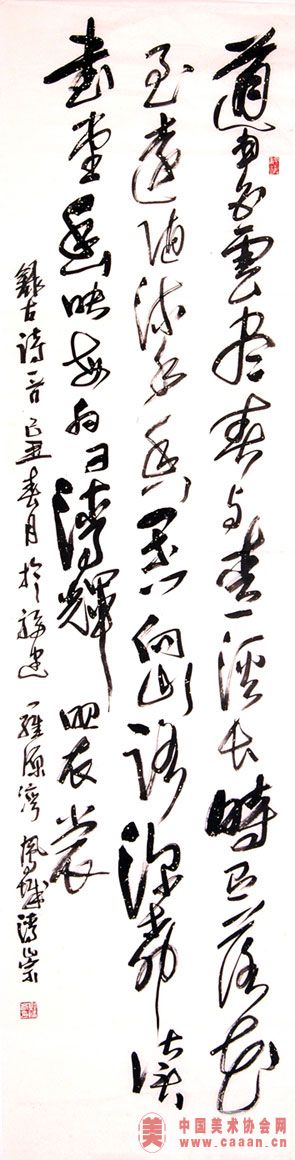 道由白雲盡春与青溪长時有落花
至遠随流水香閑门向山路深柳讀
書堂幽映每白日清輝照衣裳
録古詩一首己丑春月於福建羅源灣鳳城清崇
美 中国美术协会网
www.caaan.cn